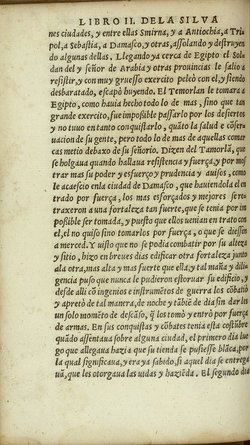 LIBRO II. DE LA SILVA
nes ciudades, y entre ellas Smirna, y a Antiochia, a Tri
pol, a Sebastia, a Damasco, y otras, assolando y destruyen
do algunas dellas. Llegando ya cerca de Egipto el Sol
dan del y señor de Arabia y otras prouincias le salio a
resistir, y con muy gruesso exercito peleò con el, y siendo
desbaratado, escapò huyendo. El Temorlan le tomara a
Egipto, como hauia hecho todo lo de mas, sino que tan
grande exercito, fue impossible passarlo por los desiertos
y no tuuo en tanto conquistarlo, quāto la salud e conser-
uacion de su gente, pero todo lo de mas de aquellas comar
cas metio debaxo de su señorio. Dizen del Tamorlā, que
se holgaua quando hallaua resistencia y fuerça, y por mo
strar mas su poder y esfuerço y prudencia y auisos, como
le acaescio enla ciudad de Damasco, que hauiendola el en
trado por fuerça, los mas esforçados y mejores se re-
traxeron a una fortaleza tan fuerte, que se tenia por im
possible ser tomada, y puesto que ellos uenian en trato con
el, el no quiso sino tomarlos por fuerça, o que se diessen
a merced. Y uisto que no se podia combatir por su alteza
y sitio, hizo en breues dias edificar otra fortaleza junto
ala otra, mas alta y mas fuerte que ella, y tal maña y dili
gencia puso que nunca le pudieron estoruar su edificio, y
desde alli cō ingenios e instrumētos de guerra los cōbatio
y apretò de tal manera, de noche y tābiē de dia sin darles
un solo momēto de descāso, q̄ los tomò y entrò por fuerça
de armas. En sus conquistas y cōbates tenia esta costūbre
quādo assentaua sobre alguna ciudad, el primero dia lue
go que allegaua hazia que su tienda se pusiesse blāca, por
la qual significaua, y era ya sabido, si aquel dia se entrega
uā, que les otorgaua las uidas y haziēda. El segundo dia